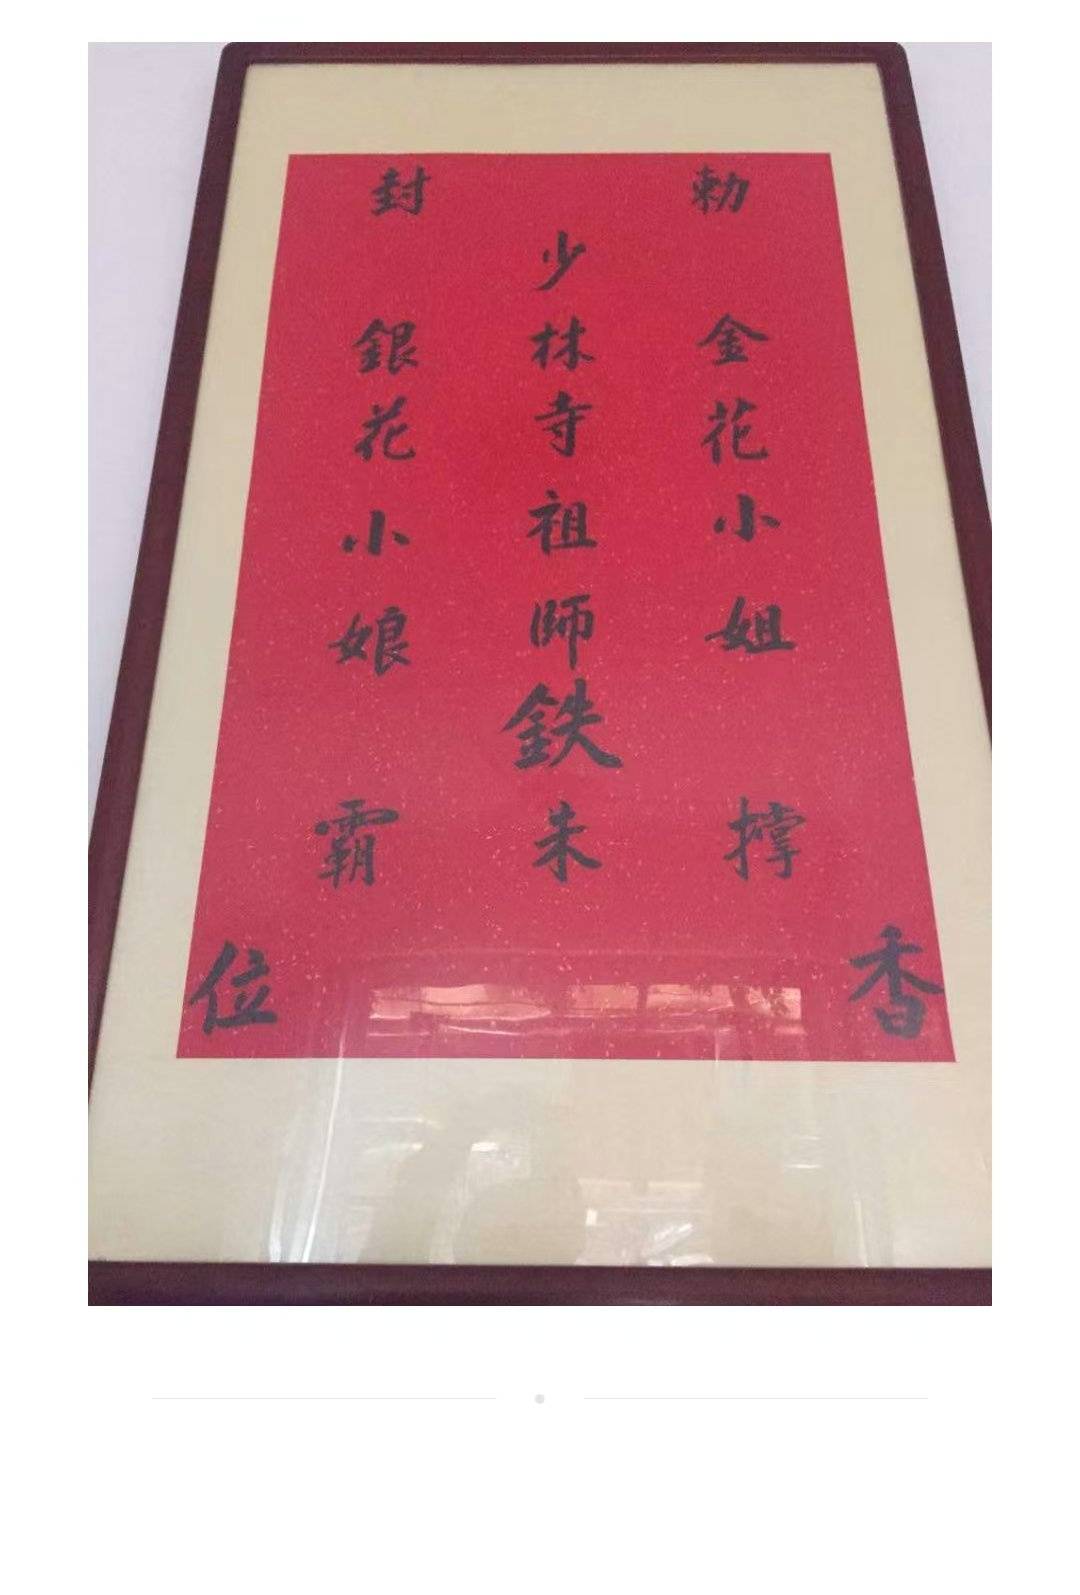 勅封
金花小姐
少林寺祖師鉄朱
銀花小娘
撑霸
香位